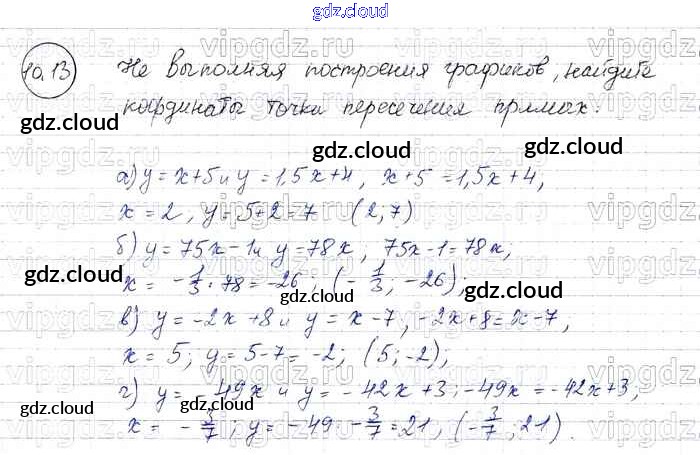 gdz.cloud
10.13 Не выполняя построения графиков, найдите
координаты точки пересечения прямых.
gdz.cloud
gdz.cloud
gdz.cloud
а) y = x+5 и y = 1,5x+4, x+5 = 1,5x+4,
x = 2, y = 5+2 = 7 (2; 7)
gdz.cloud
б) y = 75x-1 и y = 78x, 75x-1 = 78x;
x = -1/3 · 78 = -26; (-1/3; -26);
gdz.cloud
gdz.cloud
gdz.cloud
в) y = -2x+8 и y = x-7, -2x+8 = x-7,
x = 5; y = 5-7 = -2; (5; -2);
г) y = -49x и y = -42x+3; -49x = -42x+3;
gdz.cloud
gdz.cloud
x = -3/7; y = -49 - 3/7 = 21, (-3/7; 21).
vipgdz.ru